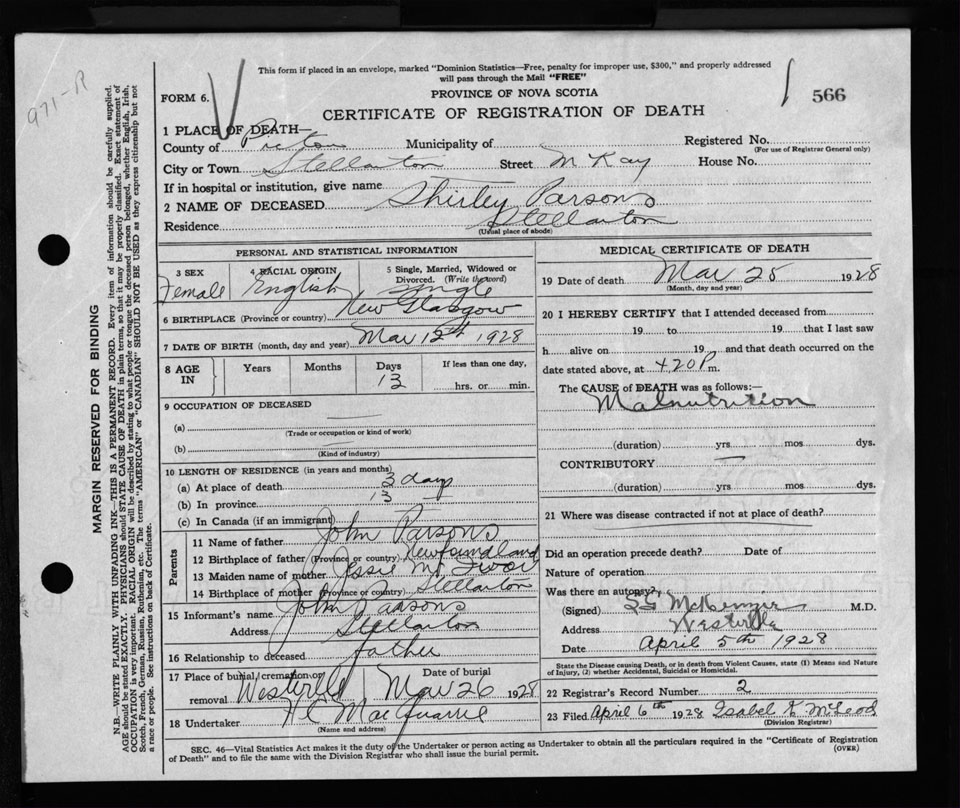 971-R
This form if placed in an envelope, marked "Dominion Statistics—Free, penalty for improper use, $300," and properly addressed
will pass through the Mail "FREE"
FORM 6.
PROVINCE OF NOVA SCOTIA
566
CERTIFICATE OF REGISTRATION OF DEATH
1 PLACE OF DEATH—
County of Pictou Municipality of Registered No.
(For use of Registrar General only)
City or Town Stellarton Street McKay House No.
If in hospital or institution, give name
2 NAME OF DECEASED Shirley Parsons
Residence Stellarton
(Usual place of abode)
PERSONAL AND STATISTICAL INFORMATION
3 SEX 4 RACIAL ORIGIN 5 Single, Married, Widowed or
Divorced. (Write the word)
Female English Single
6 BIRTHPLACE (Province or country) New Glasgow
7 DATE OF BIRTH (month, day and year) Mar 12th 1928
8 AGE IN Years Months Days If less than one day,
13 hrs. or min.
9 OCCUPATION OF DECEASED
(a)
(Trade or occupation or kind of work)
(b)
(Kind of industry)
10 LENGTH OF RESIDENCE (in years and months)
(a) At place of death 3 days
(b) In province 13
(c) In Canada (if an immigrant)
Parents
11 Name of father John Parsons
12 Birthplace of father (Province or country) Newfoundland
13 Maiden name of mother Jessie
14 Birthplace of mother (Province or country) Stellarton
15 Informant's name John Parsons
Address Stellarton
16 Relationship to deceased father
17 Place of burial, cremation or Date of burial
removal Westville Mar 26 1928
18 Undertaker H C MacQuarrie
(Name and address)
MEDICAL CERTIFICATE OF DEATH
19 Date of death Mar 25 1928
(Month, day and year)
20 I HEREBY CERTIFY that I attended deceased from
19 to 19 that I last saw
h alive on 19 and that death occurred on the
date stated above, at 4.20 P m.
The CAUSE of DEATH was as follows:—
Malnutrition
(duration) yrs mos dys.
CONTRIBUTORY
(duration) yrs mos dys.
21 Where was disease contracted if not at place of death?
Did an operation precede death? Date of
Nature of operation
Was there an autopsy?
(Signed) McKenzie M.D.
Address Westville
Date April 5th 1928
State the Disease causing Death, or in death from Violent Causes, state (1) Means and Nature
of Injury, (2) whether Accidental, Suicidal or Homicidal.
22 Registrar's Record Number 2
23 Filed April 6th 1928 Isabel K McLeod
(Division Registrar)
SEC. 46—Vital Statistics Act makes it the duty of the Undertaker or person acting as Undertaker to obtain all the particulars required in the "Certificate of Registration
of Death" and to file the same with the Division Registrar who shall issue the burial permit.
(OVER)
MARGIN RESERVED FOR BINDING
N.B.—WRITE PLAINLY WITH UNFADING INK—THIS IS A PERMANENT RECORD. Every item of information should be carefully supplied.
AGE should be stated EXACTLY. PHYSICIANS should STATE CAUSE OF DEATH in plain terms, so that it may be properly classified. Exact statement of
OCCUPATION is very important. RACIAL ORIGIN will be described by stating to what people or tongue the deceased person belonged, whether English, Irish,
Scotch, French, German, Russian, Ruthenian, etc. The terms "AMERICAN" or "CANADIAN" SHOULD NOT BE USED as they express citizenship but not
a race or people. See instructions on back of Certificate.